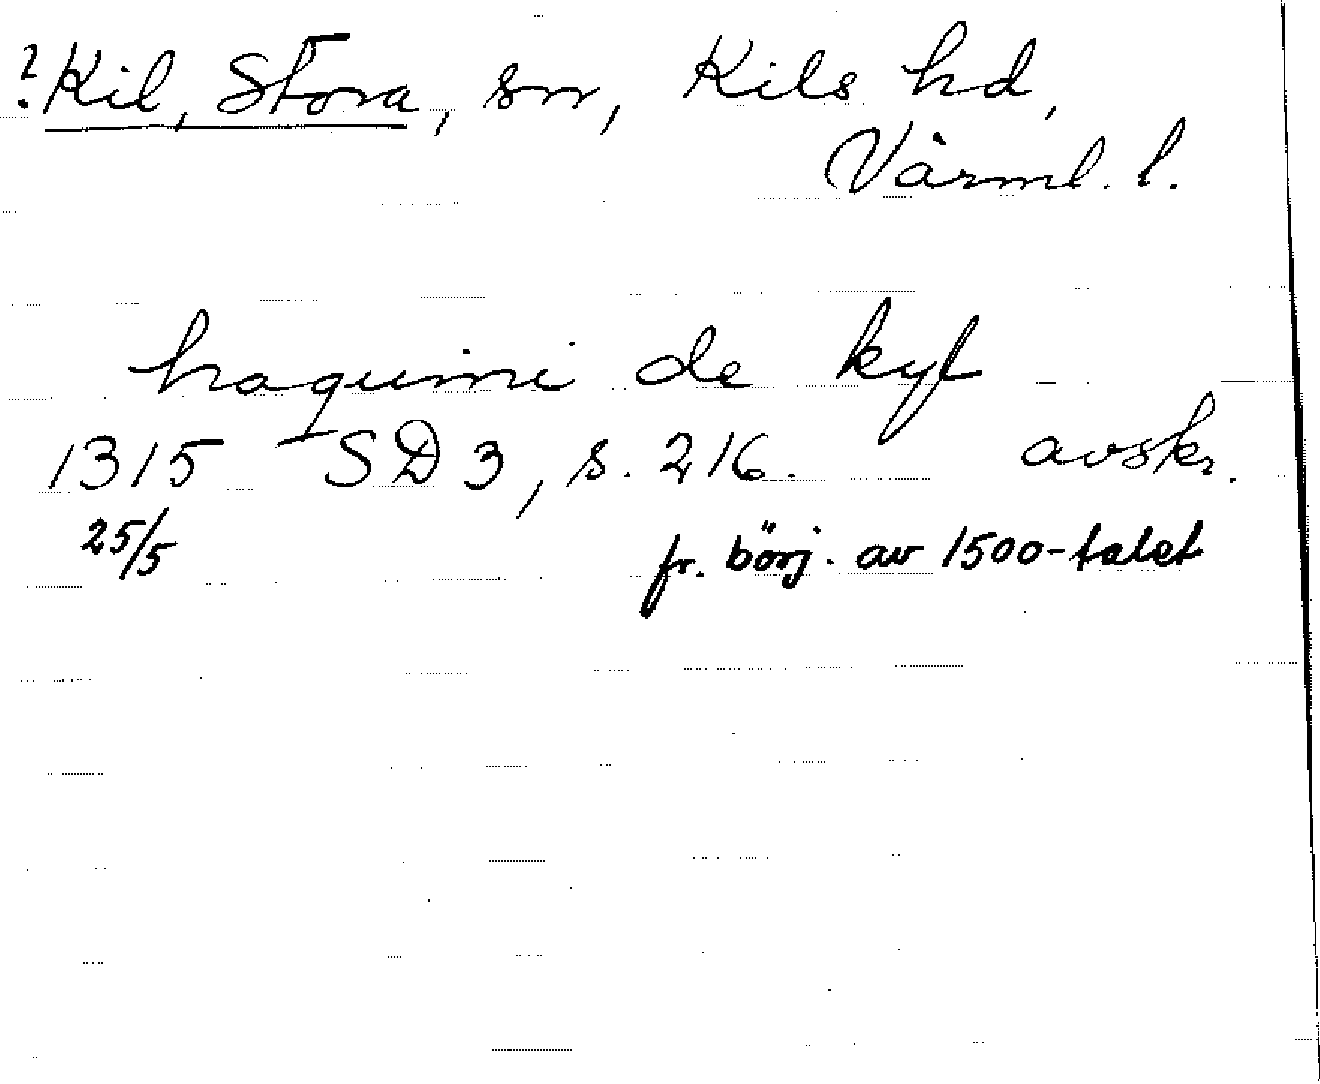 ? Kil, Stora, sn, Kils hd,
Värml. l.
haquini de kyl
1315 SD 3, s. 216. avskr.
25/5 fr. börj. av 1500-talet